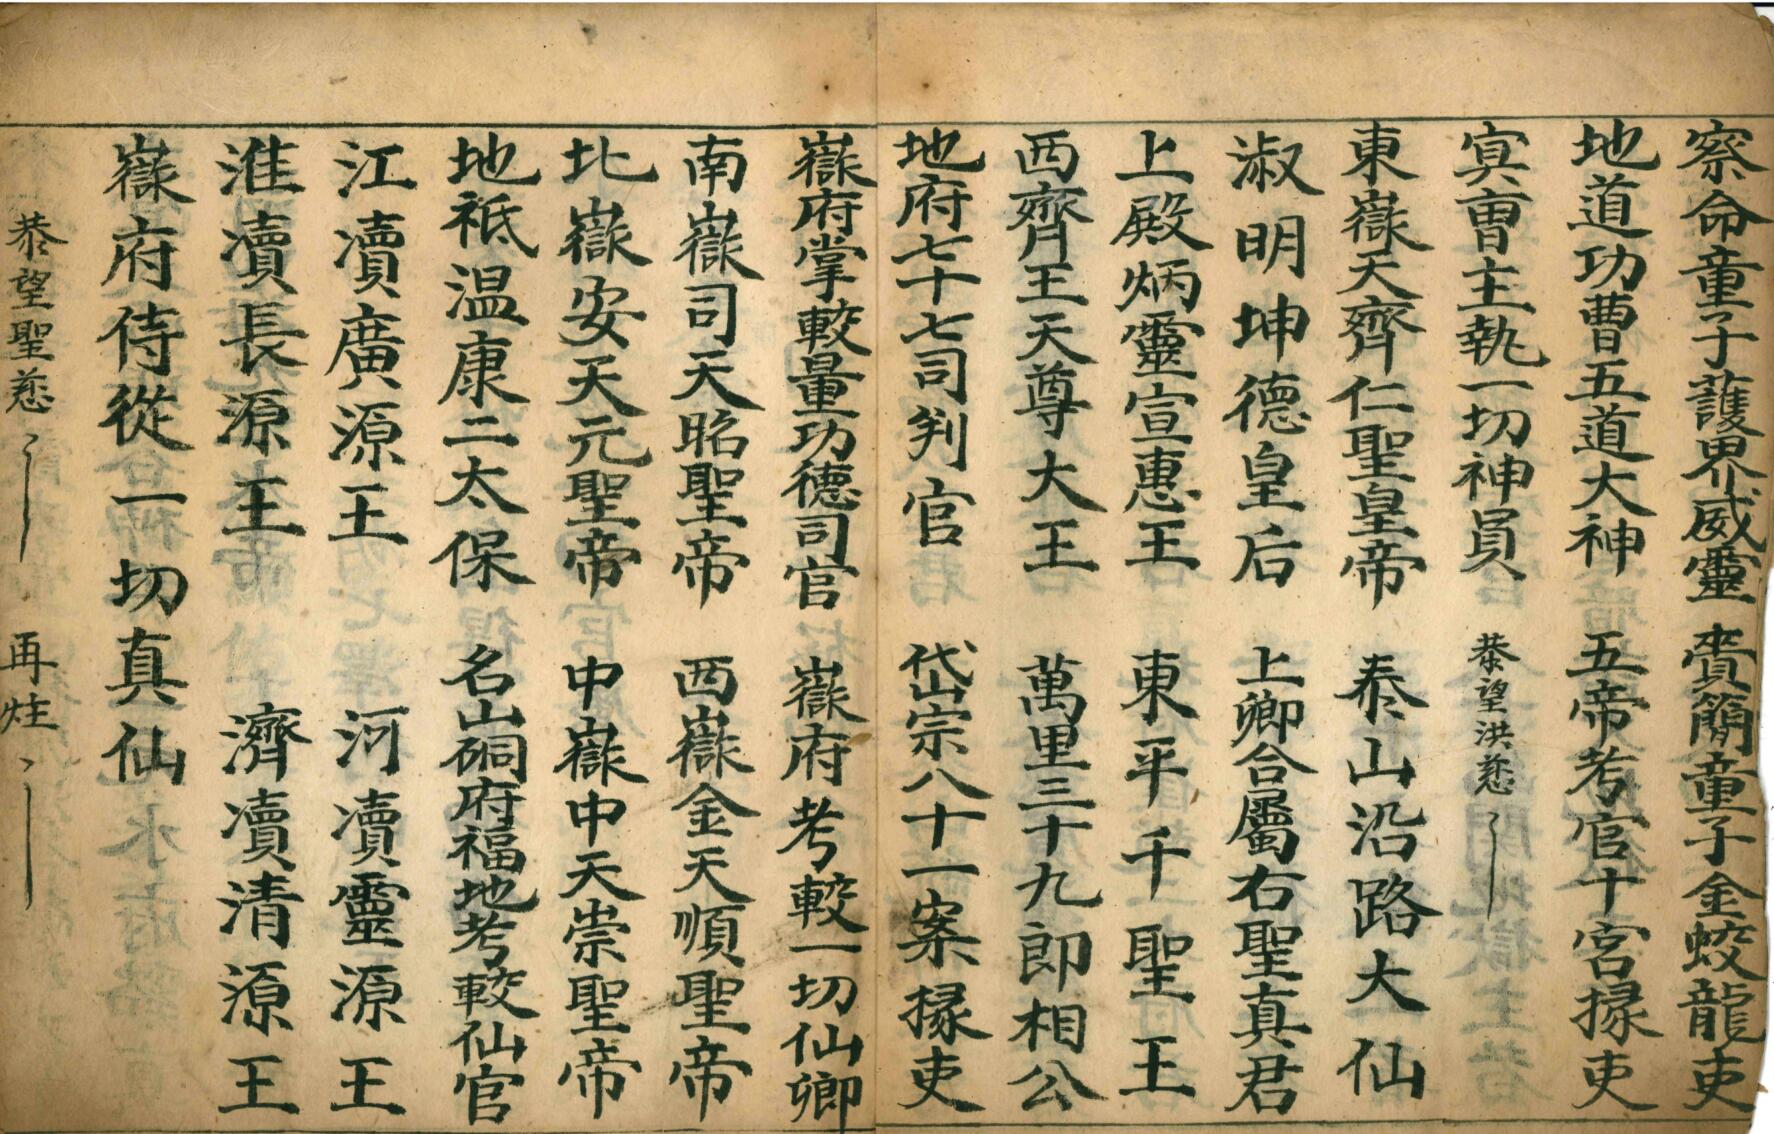 察命童子護界威靈　賫簡童子金蛟龍吏
地道功曹五道大神　五帝考官十宮掾吏
冥曹主執一切神員　恭望洪慈
東嶽天齊仁聖皇帝　泰山沿路大仙
淑明坤德皇后　上卿合屬右聖真君
上殿炳靈宣惠王　東平千聖王
西齊王天尊大王　萬里三十九郎相公
地府七十七司判官　岱宗八十一案掾吏
嶽府掌較量功德司官　嶽府考較一切仙卿
南嶽司天昭聖帝　西嶽金天順聖帝
北嶽安天元聖帝　中嶽中天崇聖帝
地祇温康二太保　名山硐府福地考較仙官
江瀆廣源王　河瀆靈源王
淮瀆長源王　濟瀆清源王
嶽府侍從一切真仙
恭望聖慈　再炷